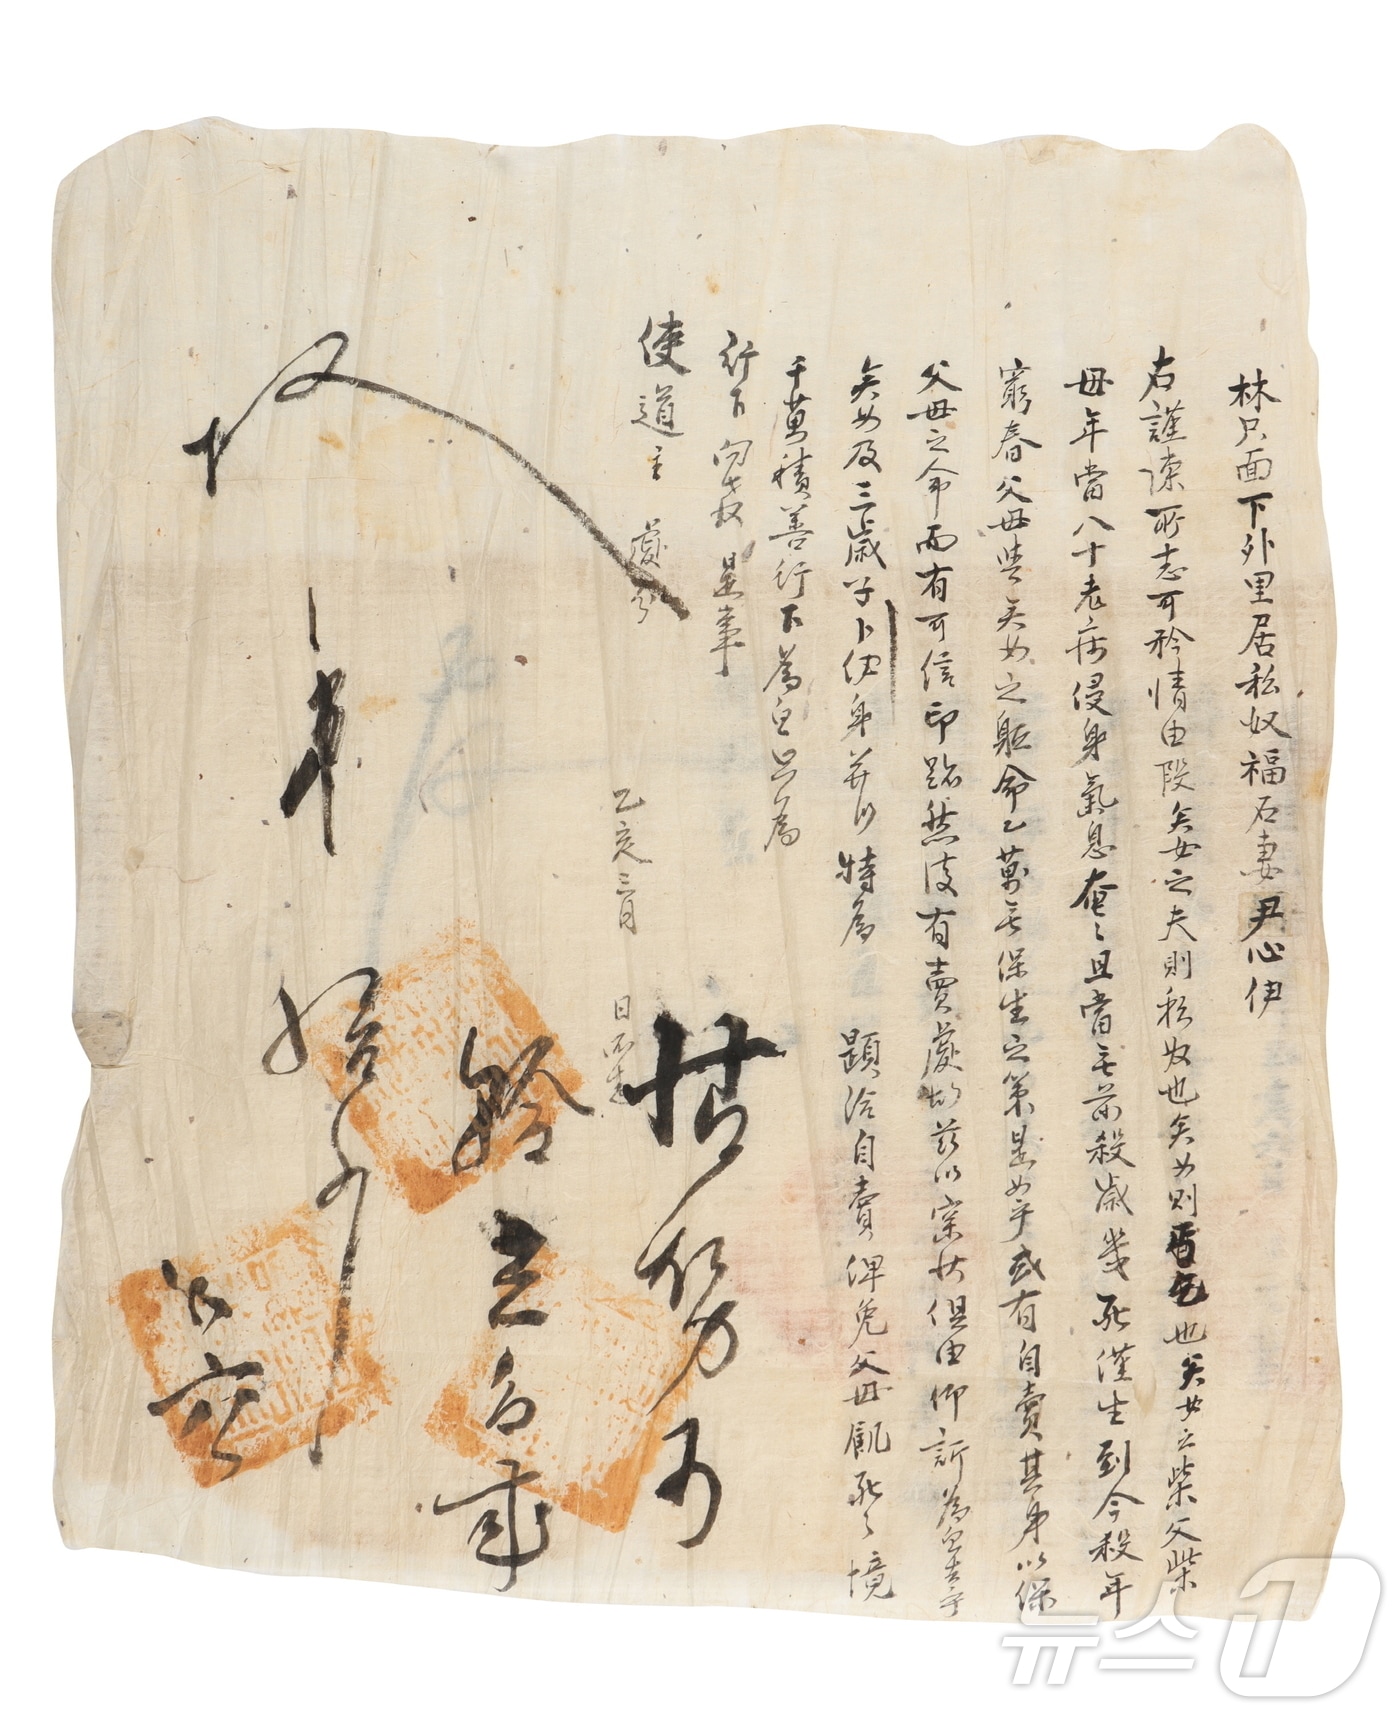 林只面下外里居私奴福石妻尹心伊
右謹陳所志可矜情由段矣女之夫則私奴也矣女則也矣女之柴父柴
母年當八十老病侵身氣息奄〻且當無前殺歲幾死僅生到今殺年
窮春父母與矣女之軀命乙萬無保生之策是如乎或有自賣其身以保
父母之命而有可信印跡然後有賣處故玆以實狀俱由仰訴爲白去乎
矣女及三歲子卜伊身幷以 特爲 題給自賣俾免父母飢死之境
千萬積善行下爲白只爲
行下向敎是事
使道主 處分
乙亥三月 日
情勢可
矜立旨事
뉴스1